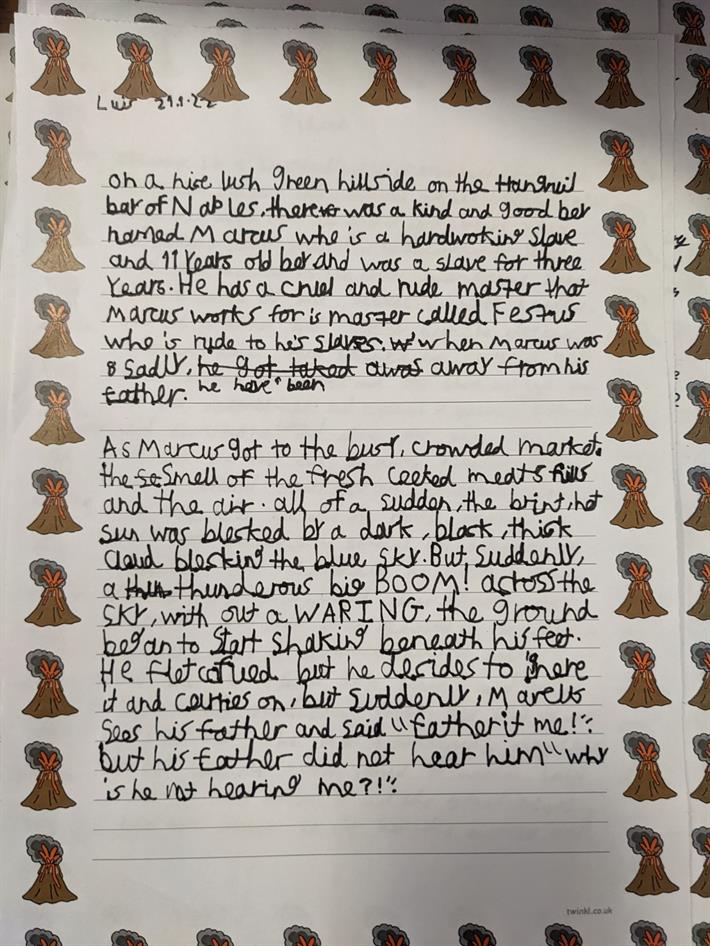 Luis 29.1.22
on a nise lush green hillside on the
bay of Naples, there was a kind and good boy
named Marcus who is a hardwoking slave
and 11 years old boy and was a slave for three
years. He has a cruel and rude master that
Marcus works for is master called Festus
who is rude to he's slaves. when Marcus was
8 sadly, he got taked away from his
father. he have been
As Marcus got to the busy, crowded market.
the smell of the fresh cooked meats fills
and the air. all of a sudden, the brint, hot
sun was blocked by a dark, black, thick
cloud blocking the blue sky. But, suddenly,
a thunderous big BOOM! across the
sky, with out a WARING, the ground
began to start shaking beneath his feet.
He flet but he decides to
it and carries on, but suddenly,
sees his father and said "father it me!".
but his father did not hear him "why
is he not hearing me?!".
twinkl.co.uk